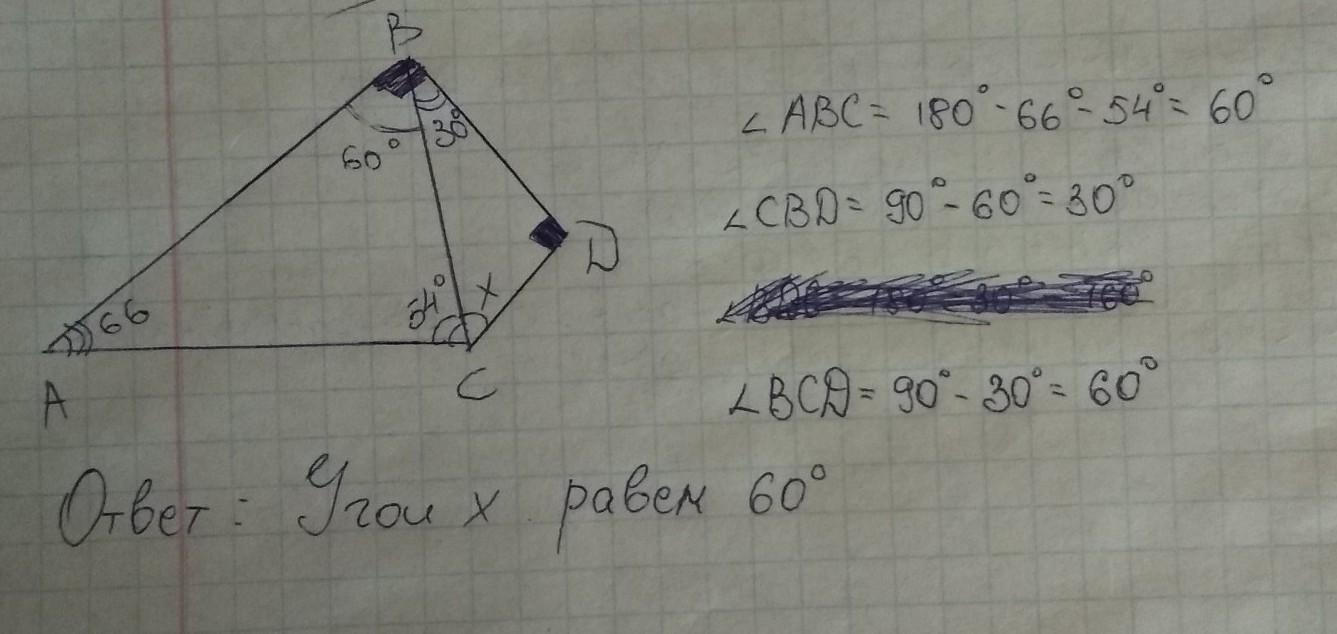 B
∠ABC = 180° - 66° - 54° = 60°
60° 30°
∠CBD = 90° - 60° = 30°
D
66 54° x
A C
∠BCD = 90° - 30° = 60°
Ответ: Угол x равен 60°